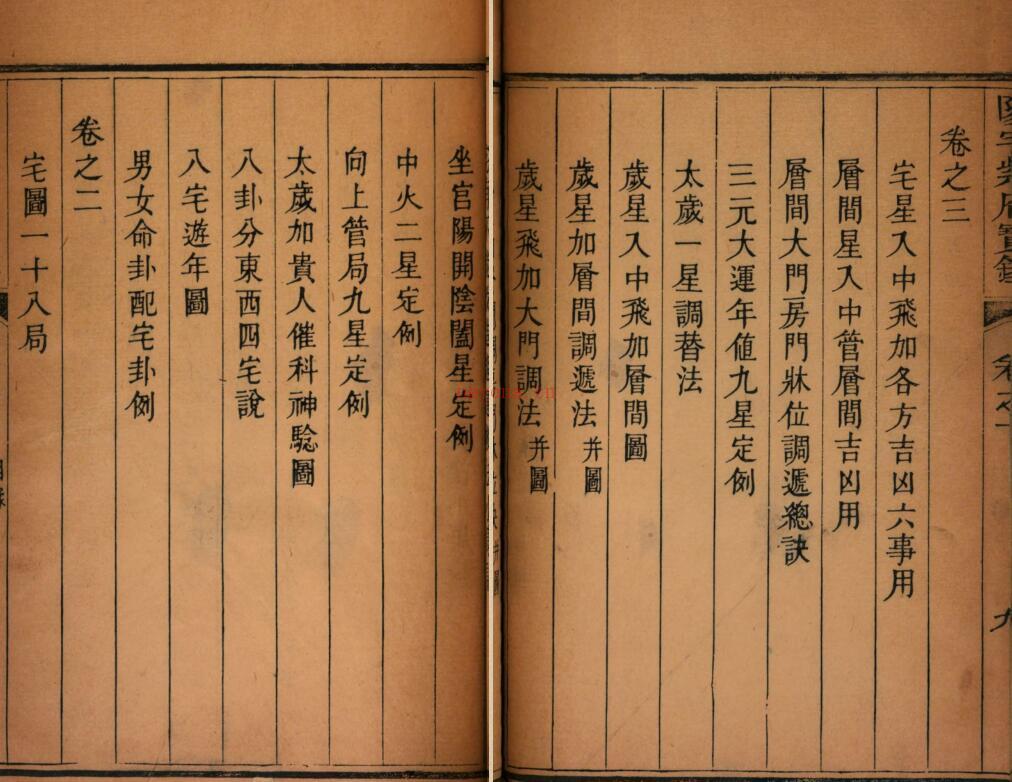 卷之三
宅星入中飛加各方吉凶六事用
層間星入中管層間吉凶用
層間大門房門牀位調遞總訣
三元大運年值九星定例
太歲一星調替法
歲星入中飛加層間圖
歲星加層間調遞法 并圖
歲星飛加大門調法 并圖
坐官陽開陰闔星定例
中火二星定例
向上管局九星定例
太歲加貴人催科神騐圖
八卦分東西四宅說
八宅遊年圖
男女命卦配宅卦例
卷之二
宅圖一十八局